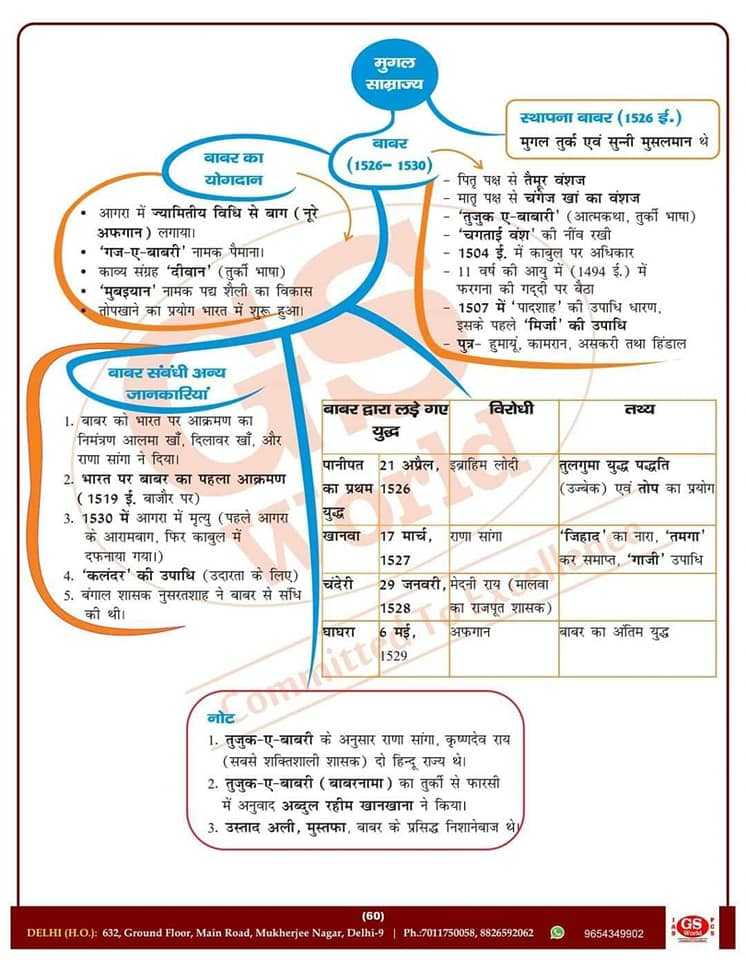 मुगल
साम्राज्य
स्थापना बाबर (1526 ई.)
मुगल तुर्क एवं सुन्नी मुसलमान थे
बाबर
(1526– 1530)
- पितृ पक्ष से तैमूर वंशज
- मातृ पक्ष से चंगेज खां का वंशज
- 'तुजुक ए-बाबारी' (आत्मकथा, तुर्की भाषा)
- 'चगताई वंश' की नींव रखी
- 1504 ई. में काबुल पर अधिकार
- 11 वर्ष की आयु में (1494 ई.) में
फरगना की गद्दी पर बैठा
- 1507 में 'पादशाह' की उपाधि धारण,
इसके पहले 'मिर्जा' की उपाधि
- पुत्र- हुमायूं, कामरान, असकरी तथा हिंडाल
बाबर का
योगदान
• आगरा में ज्यामितीय विधि से बाग (नूरे
अफगान) लगाया।
• 'गज-ए-बाबरी' नामक पैमाना।
• काव्य संग्रह 'दीवान' (तुर्की भाषा)
• 'मुबइयान' नामक पद्य शैली का विकास
• तोपखाने का प्रयोग भारत में शुरू हुआ।
बाबर संबंधी अन्य
जानकारियां
1. बाबर को भारत पर आक्रमण का
निमंत्रण आलमा खाँ, दिलावर खाँ, और
राणा सांगा ने दिया।
2. भारत पर बाबर का पहला आक्रमण
(1519 ई. बाजौर पर)
3. 1530 में आगरा में मृत्यु (पहले आगरा
के आरामबाग, फिर काबुल में
दफनाया गया।)
4. 'कलंदर' की उपाधि (उदारता के लिए)
5. बंगाल शासक नुसरतशाह ने बाबर से संधि
की थी।
बाबर द्वारा लड़े गए विरोधी तथ्य
युद्ध
पानीपत 21 अप्रैल, इब्राहिम लोदी तुलगुमा युद्ध पद्धति
का प्रथम 1526 (उज्बेक) एवं तोप का प्रयोग
युद्ध
खानवा 17 मार्च, राणा सांगा 'जिहाद' का नारा, 'तमगा'
1527 कर समाप्त, 'गाजी' उपाधि
चंदेरी 29 जनवरी, मेदनी राय (मालवा
1528 का राजपूत शासक)
घाघरा 6 मई, अफगान बाबर का अंतिम युद्ध
1529
नोट
1. तुजुक-ए-बाबरी के अनुसार राणा सांगा, कृष्णदेव राय
(सबसे शक्तिशाली शासक) दो हिन्दू राज्य थे।
2. तुजुक-ए-बाबरी (बाबरनामा) का तुर्की से फारसी
में अनुवाद अब्दुल रहीम खानखाना ने किया।
3. उस्ताद अली, मुस्तफा, बाबर के प्रसिद्ध निशानेबाज थे
GS
World
Committed To Excellence
(60)
DELHI (H.O.): 632, Ground Floor, Main Road, Mukherjee Nagar, Delhi-9 | Ph.:7011750058, 8826592062 9654349902
IAS GS World PCS